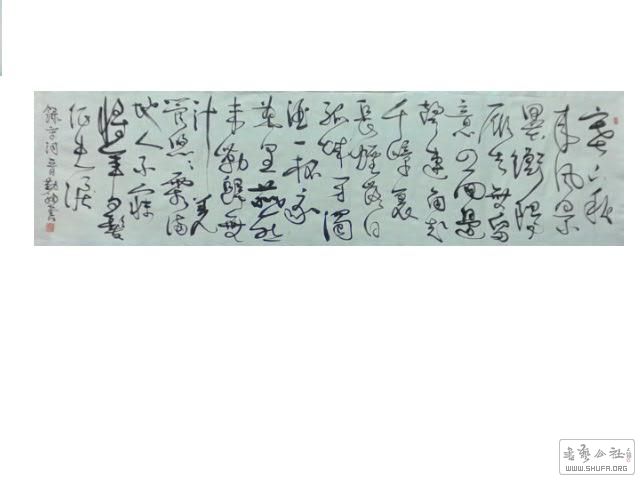 塞下秋
来风景
異衡陽
雁去無留
意四面邊
聲連角起
千嶂裏
長煙落日
孤城閉濁
酒一杯家
萬里燕然
未勒歸無
計羌
管悠々霜滿
地人不寐
將軍白髮
征夫淚
錄宋詞一首 書
書藝公社
WWW.SHUFA.ORG